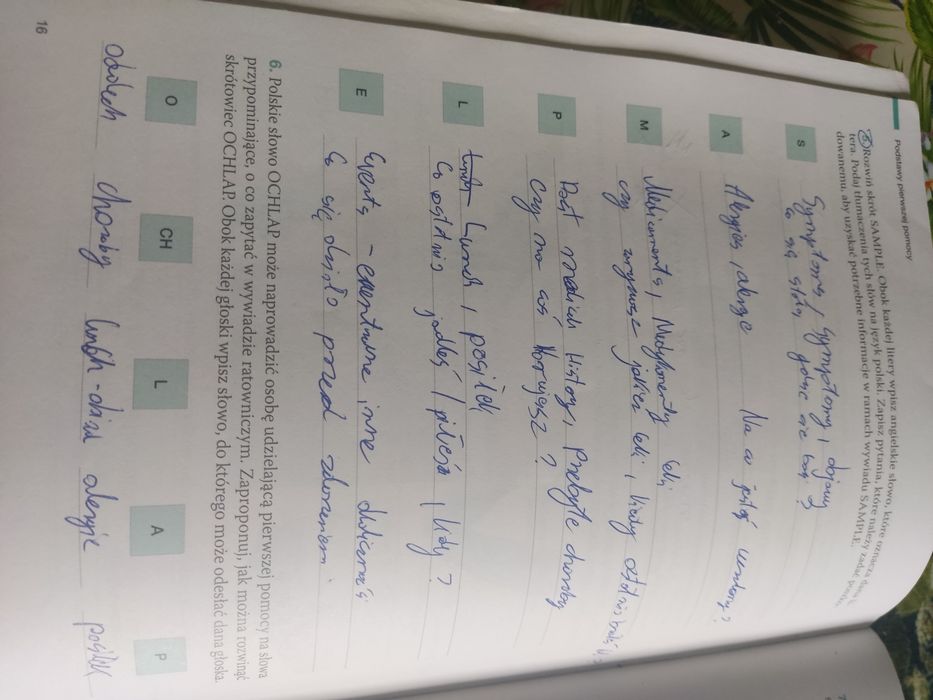 Podstawy pierwszej pomocy
5. Rozwiń skrót SAMPLE. Obok każdej litery wpisz angielskie słowo, które oznacza dana li-
tera. Podaj tłumaczenia tych słów na język polski. Zapisz pytania, które należy zadać poszko-
dowanemu, aby uzyskać potrzebne informacje w ramach wywiadu SAMPLE.
S
Symptoms, Symptomy, objawy
Co się stało, gdzie cię boli?
A
Alergies, alergie Na co jesteś uczulony?
M
Medicaments, Medykamenty leki
czy zażywasz jakieś leki, kiedy ostatnio
P
Past medical History, przebyte choroby
czy na coś chorujesz?
L
Lunch, posiłek
Co ostatnio jadłeś / piłeś, kiedy?
E
Events - ewentualne inne
Co się działo przed zdarzeniem.
6. Polskie słowo OCHLAP może naprowadzić osobę udzielającą pierwszej pomocy na słowa
przypominające, o co zapytać w wywiadzie ratowniczym. Zaproponuj, jak można rozwinąć
skrótowiec OCHLAP. Obok każdej głoski wpisz słowo, do którego może odesłać dana głoska.
O CH L A P
oddech choroby alergie posiłek
16